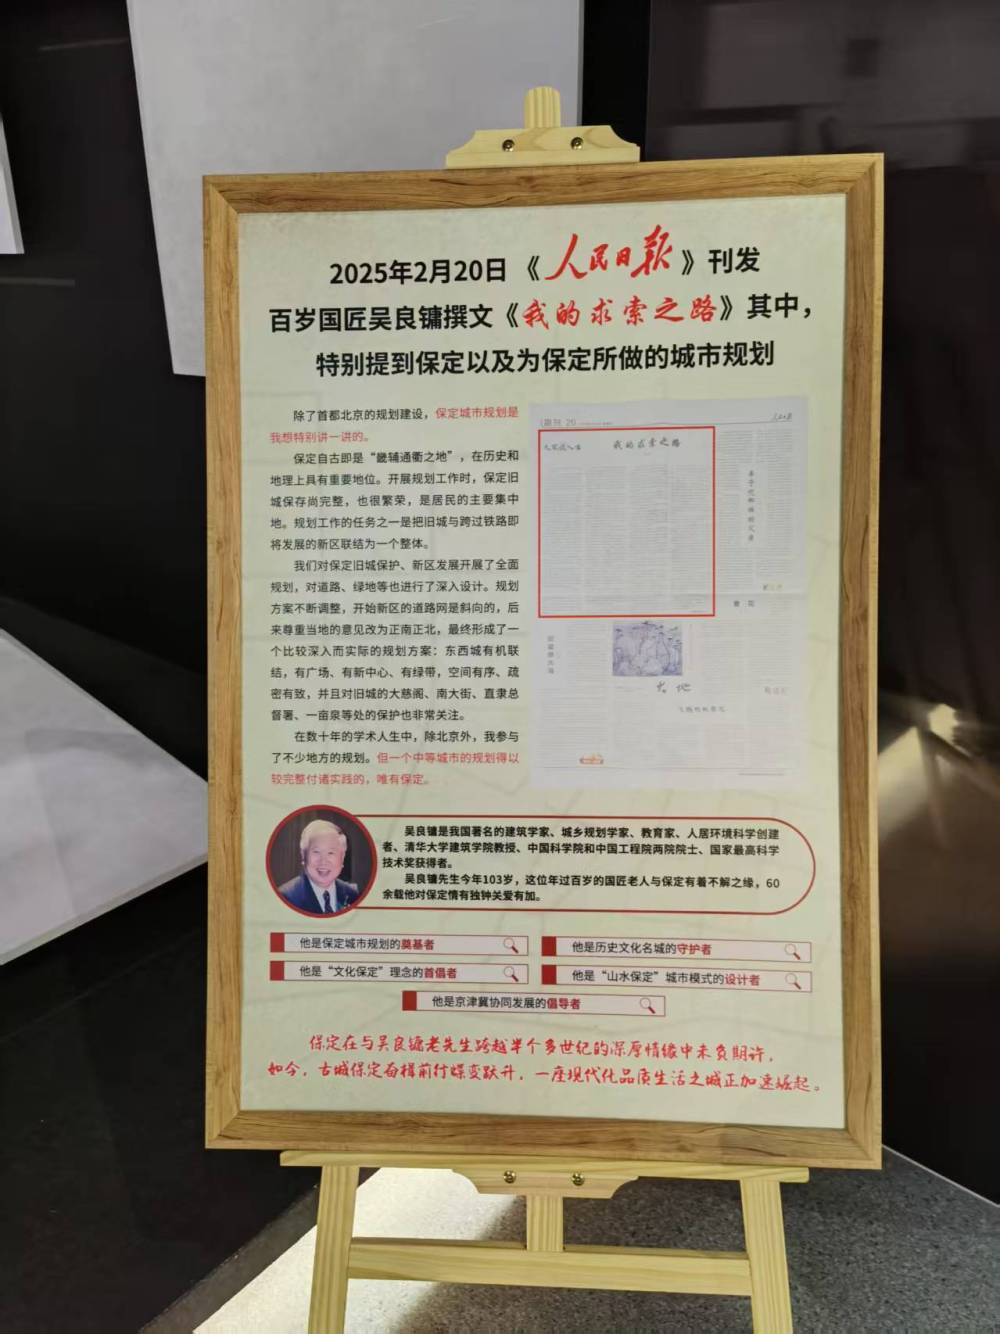 2025年2月20日《人民日报》刊发
百岁国匠吴良镛撰文《我的求索之路》其中，
特别提到保定以及为保定所做的城市规划
除了首都北京的规划建设，保定城市规划是
我想特别讲一讲的。
保定自古即是“畿辅通衢之地”，在历史和
地理上具有重要地位。开展规划工作时，保定旧
城保存尚完整，也很繁荣，是居民的主要集中
地。规划工作的任务之一是把旧城与跨过铁路即
将发展的新区联结为一个整体。
我们对保定旧城保护、新区发展开展了全面
规划，对道路、绿地等也进行了深入设计。规划
方案不断调整，开始新区的道路网是斜向的，后
来尊重当地的意见改为正南正北，最终形成了一
个比较深入而实际的规划方案：东西城有机联
结，有广场、有新中心、有绿带，空间有序、疏
密有致，并且对旧城的大慈阁、南大街、直隶总
督署、一亩泉等处的保护也非常关注。
在数十年的学术人生中，除北京外，我参与
了不少地方的规划。但一个中等城市的规划得以
较完整付诸实践的，唯有保定。
副刊 20
人民日报
我的求索之路
大地
吴良镛是我国著名的建筑学家、城乡规划学家、教育家、人居环境科学创建
者、清华大学建筑学院教授、中国科学院和中国工程院两院院士、国家最高科学
技术奖获得者。
吴良镛先生今年103岁，这位年过百岁的国匠老人与保定有着不解之缘，60
余载他对保定情有独钟关爱有加。
他是保定城市规划的奠基者
他是历史文化名城的守护者
他是“文化保定”理念的首倡者
他是“山水保定”城市模式的设计者
他是京津冀协同发展的倡导者
保定在与吴良镛老先生跨越半个多世纪的深厚情缘中未负期许，
如今，古城保定奋楫前行蝶变跃升，一座现代化品质生活之城正加速崛起。